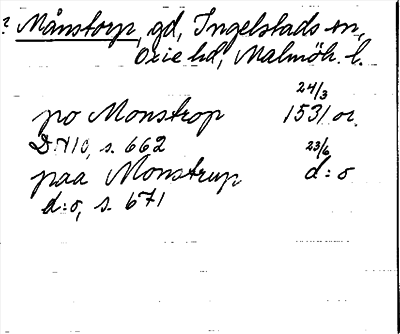 ? Månstorp, gd, Ingelstads sn,
Oxie hd, Malmöh. l.
po Monstrop 24/3 1531 or.
DN 10, s. 662
paa Monstrup 23/6 d:o
d:o, s. 671